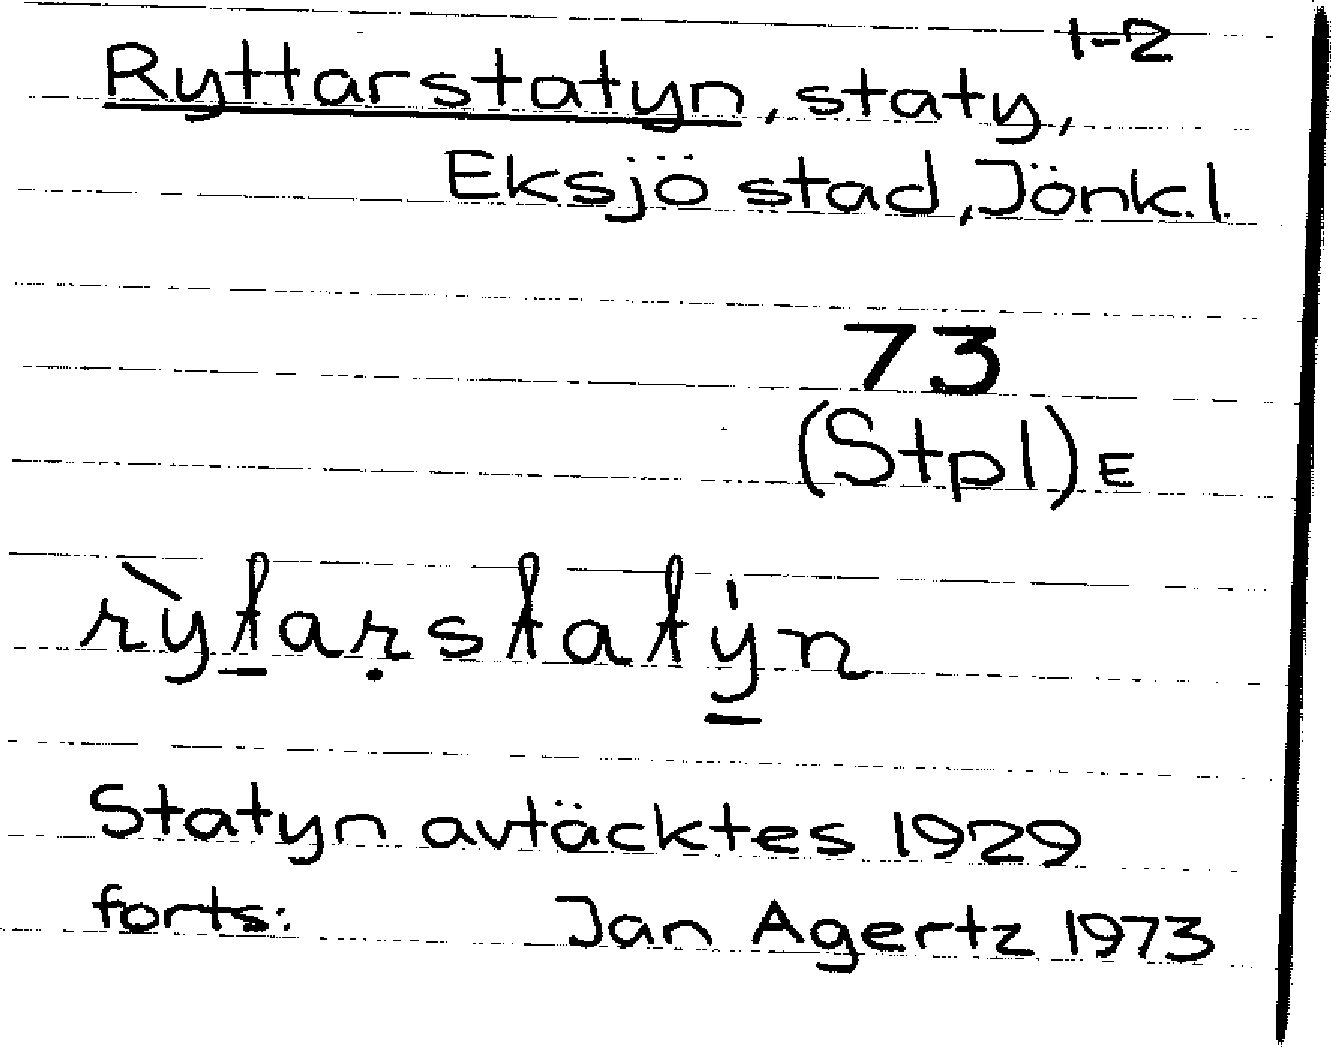 1-2
Ryttarstatyn, staty,
Eksjö stad, Jönk.l.
73
(Stpl) E
rỳtarstatýn
Statyn avtäcktes 1929
forts: Jan Agertz 1973